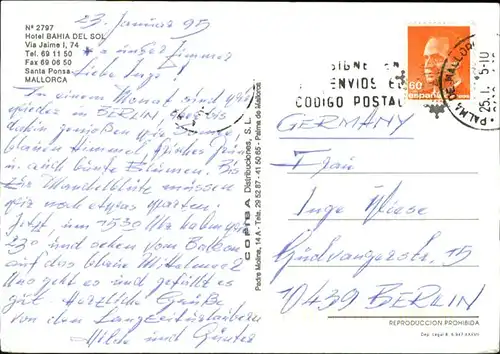 Nº 2797
Hotel BAHIA DEL SOL
Via Jaime I, 74
Tel. 69 11 50
Fax 69 06 50
Santa Ponsa
MALLORCA
23. Januar 95
Liebe Inge!
In einem Monat sind wir
wieder in BERLIN, bis
dahin genießen wir Sonne,
blauen Himmel, frisches Grün
und auch bunte Blumen. Bis
zur Mandelblüte müssen
wir noch etwas warten.
Jetzt, um 15.30 Uhr haben wir
23° und sehen vom Balkon
auf das blaue Mittelmeer.
Uns geht es und gefällt es
gut. Herzliche Grüße
von den Langzeiturlaubern
Hilde und Günter
COPIBA Distribuciones, S.L.
Padre Molina, 14 A - Tels. 29 52 87 - 41 50 65 - Palma de Mallorca
60
ENVIOS
CODIGO POSTAL
PALMA DE MALLORCA
25.1. 5-10
GERMANY
Frau
Inge Wiese
10439 BERLIN
REPRODUCCION PROHIBIDA